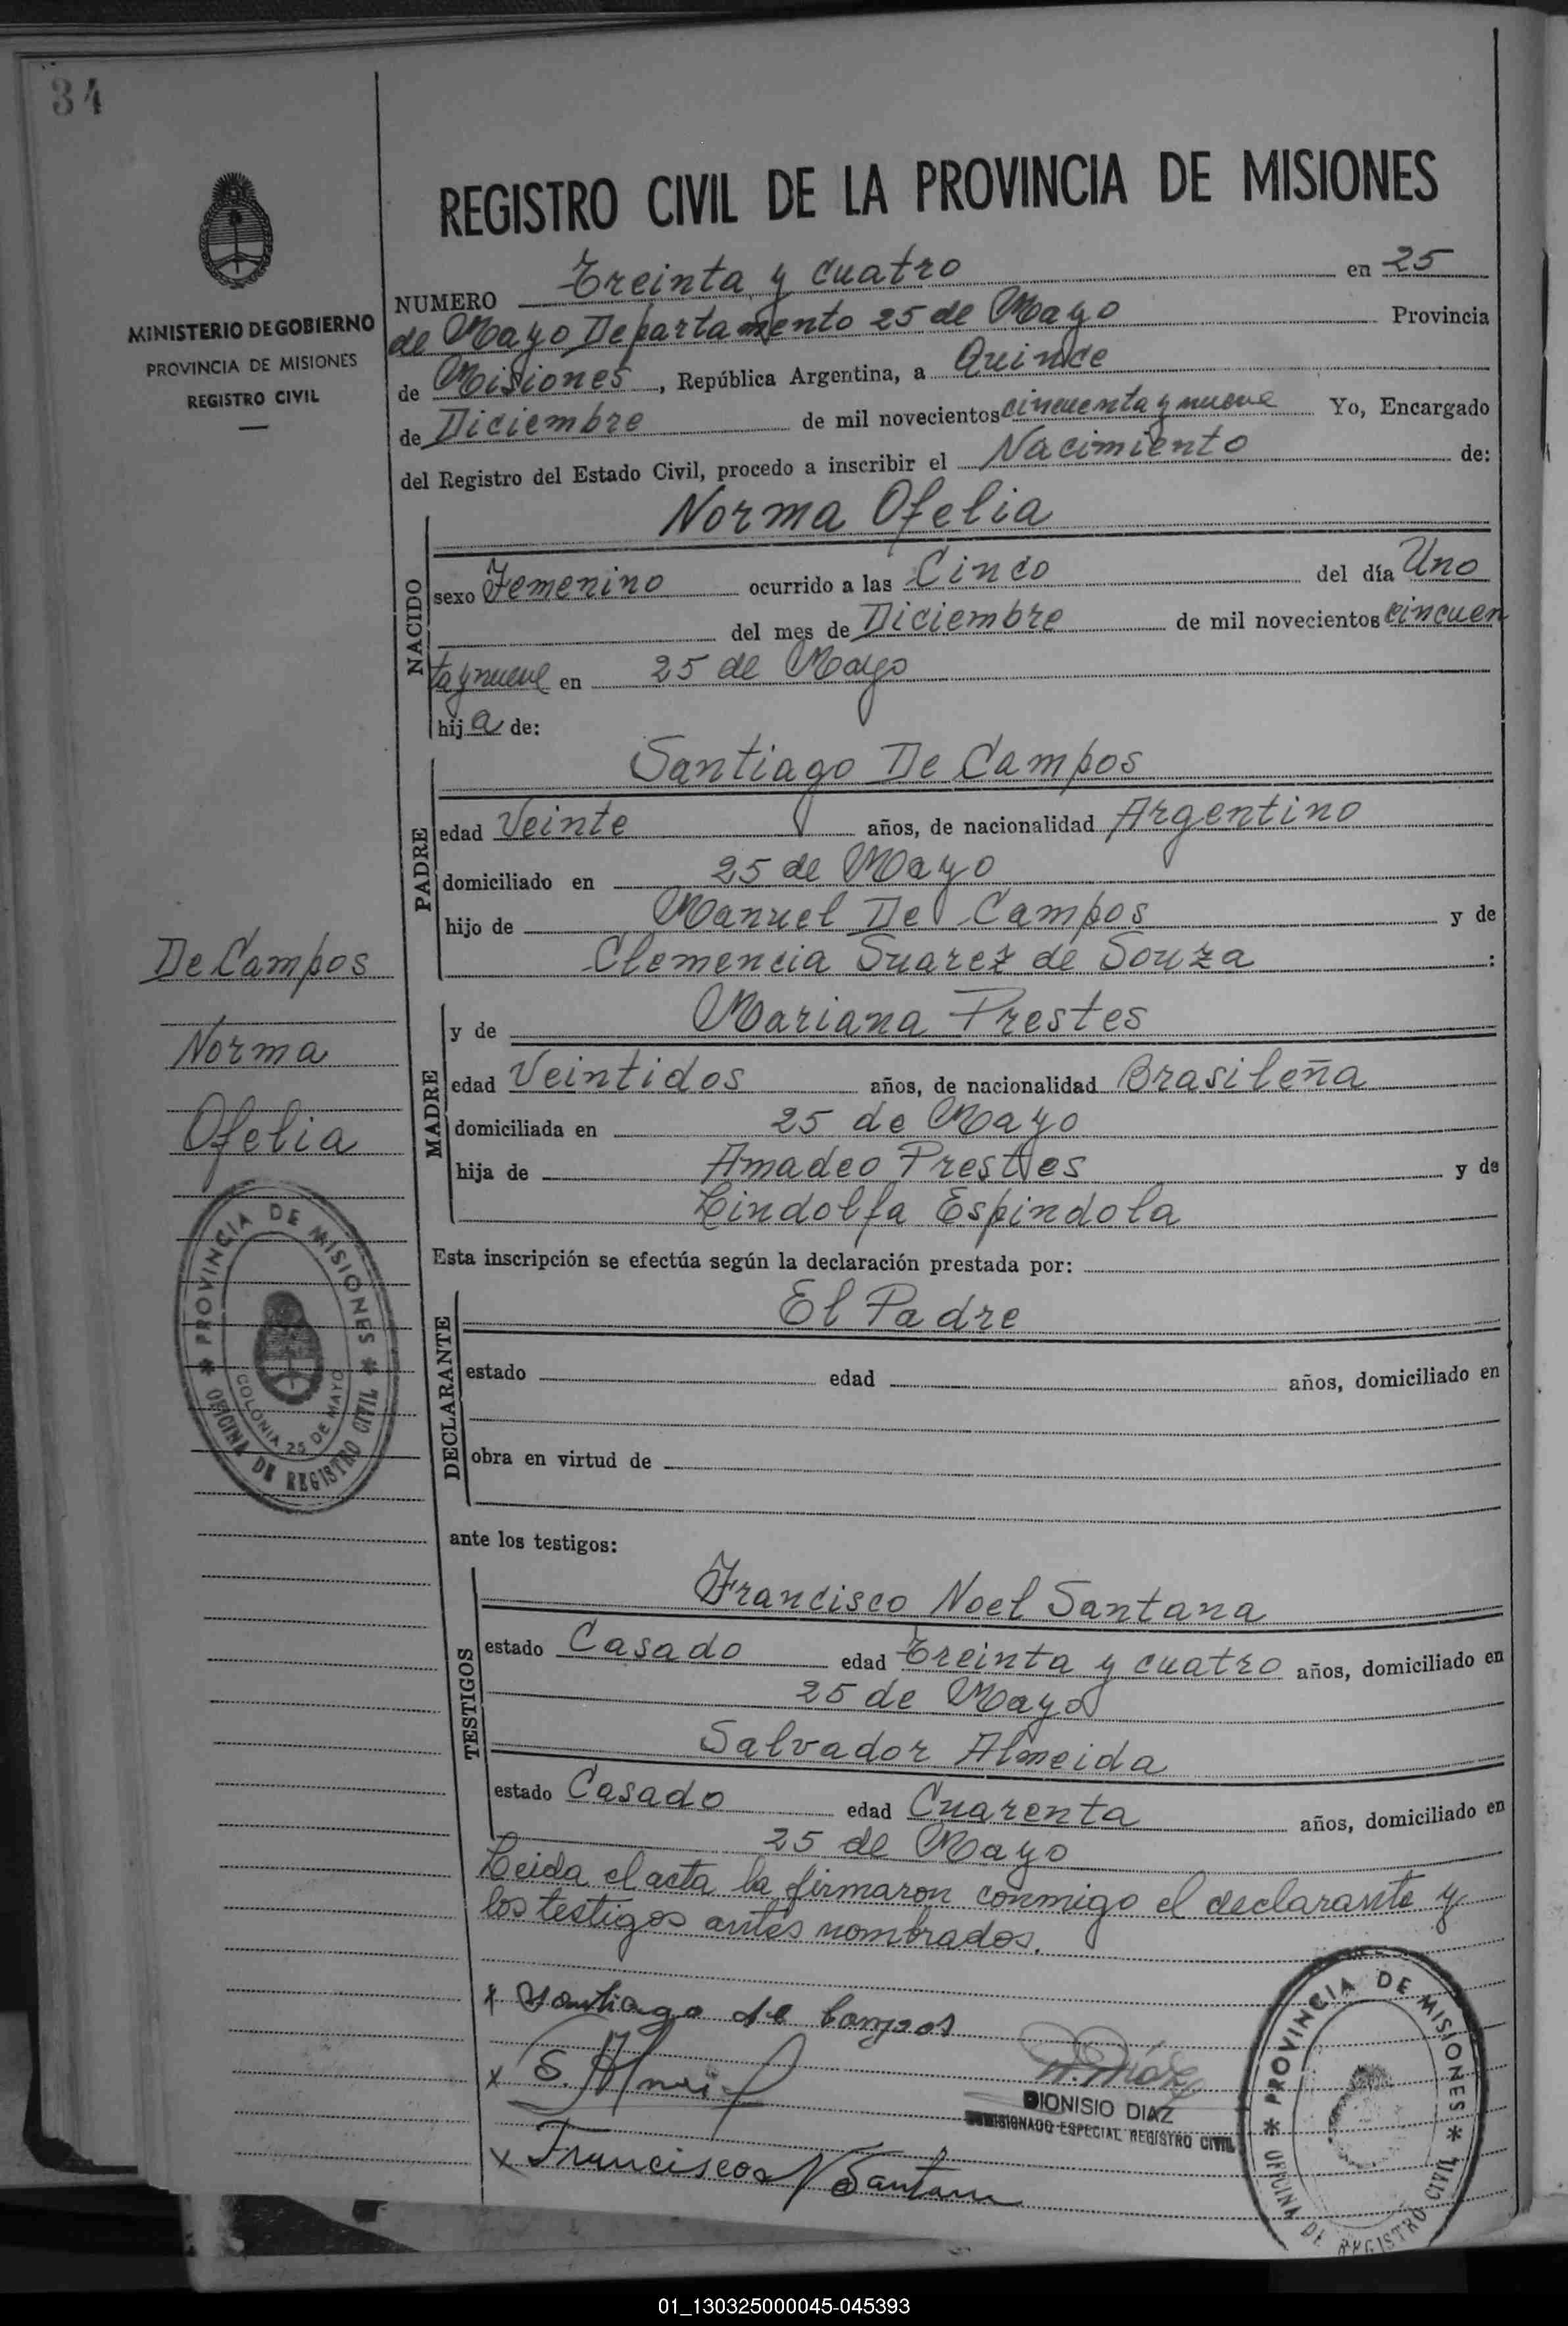 34
MINISTERIO DE GOBIERNO
PROVINCIA DE MISIONES
REGISTRO CIVIL
REGISTRO CIVIL DE LA PROVINCIA DE MISIONES
NUMERO Treinta y cuatro en 25
de Mayo Departamento 25 de Mayo Provincia
de Misiones, República Argentina, a Quince
de Diciembre de mil novecientos cincuenta y nueve Yo, Encargado
del Registro del Estado Civil, procedo a inscribir el Nacimiento de:
NACIDO
Norma Ofelia
sexo Femenino ocurrido a las Cinco del día Uno
del mes de Diciembre de mil novecientos cincuen
ta y nueve en 25 de Mayo
hija de:
PADRE
Santiago De Campos
edad Veinte años, de nacionalidad Argentino
domiciliado en 25 de Mayo
hijo de Manuel De Campos y de
Clemencia Suarez de Souza :
MADRE
y de Mariana Prestes
edad Veintidos años, de nacionalidad Brasileña
domiciliada en 25 de Mayo
hija de Amadeo Prestes y de
Lindolfa Espindola
Esta inscripción se efectúa según la declaración prestada por:
DECLARANTE
El Padre
estado edad años, domiciliado en
obra en virtud de
ante los testigos:
TESTIGOS
Francisco Noel Santana
estado Casado edad Treinta y cuatro años, domiciliado en
25 de Mayo
Salvador Almeida
estado Casado edad Cuarenta años, domiciliado en
25 de Mayo
Leida el acta la firmaron conmigo el declarante y
los testigos antes nombrados.
x Santiago de Campos
x S. Almei
x Francisco N Santana
D. Díaz
DIONISIO DIAZ
COMISIONADO ESPECIAL REGISTRO CIVIL
PROVINCIA DE MISIONES
OFICINA DE REGISTRO CIVIL
De Campos
Norma
Ofelia
PROVINCIA DE MISIONES
COLONIA 25 DE MAYO
OFICINA DE REGISTRO CIVIL
01_130325000045-045393